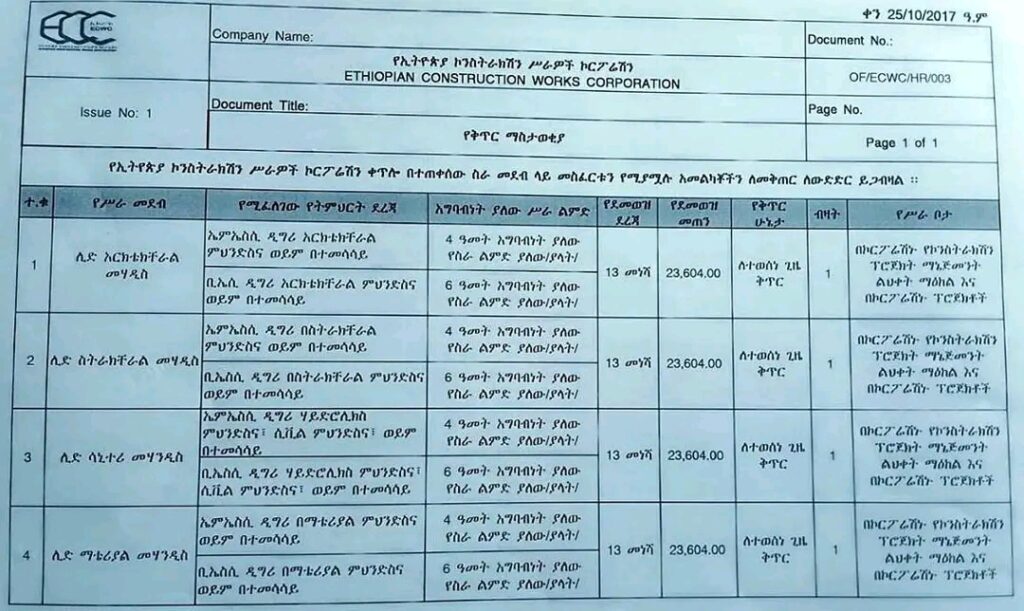 ቀን 25/10/2017 ዓ.ም
ECWC
Company Name:
Document No.:
የኢትዮጵያ ኮንስትራክሽን ሥራዎች ኮርፖሬሽን
ETHIOPIAN CONSTRUCTION WORKS CORPORATION
OF/ECWC/HR/003
Issue No: 1
Document Title:
Page No.
የቅጥር ማስታወቂያ
Page 1 of 1
የኢትዮጵያ ኮንስትራክሽን ሥራዎች ኮርፖሬሽን ቀጥሎ በተጠቀሰው ስራ መደብ ላይ መስፈርቱን የሚያሟሉ አመልካቾችን ለመቅጠር ለውድድር ይጋብዛል ፡፡
ተ.ቁ
የሥራ መደብ
የሚፈለገው የትምህርት ደረጃ
አግባብነት ያለው ሥራ ልምድ
የደመወዝ
ደረጃ
የደመወዝ
መጠን
የቅጥር
ሁኔታ
ብዛት
የሥራ ቦታ
1
ሊድ አርክቴክቸራል
መሃዲስ
ኤምኤስሲ ዲግሪ አርክቴክቸራል
ምህንድስና ወይም በተመሳሳይ
4 ዓመት አግባብነት ያለው
የስራ ልምድ ያለው/ያላት/
ቢኤስሲ ዲግሪ አርክቴክቸራል ምህንድስና
ወይም በተመሳሳይ
6 ዓመት አግባብነት ያለው
የስራ ልምድ ያለው/ያላት/
13 መነሻ
23,604.00
ለተወሰነ ጊዜ
ቅጥር
1
በኮርፖሬሽኑ የኮንስትራክሽን
ፕሮጀክት ማኔጅመንት
ልህቀት ማዕከል እና
በኮርፖሬሽኑ ፕሮጀክቶች
2
ሊድ ስትራክቸራል መሃዲስ
ኤምኤስሲ ዲግሪ በስትራክቸራል
ምህንድስና ወይም በተመሳሳይ
4 ዓመት አግባብነት ያለው
የስራ ልምድ ያለው/ያላት/
ቢኤስሲ ዲግሪ በስትራክቸራል ምህንድስና
ወይም በተመሳሳይ
6 ዓመት አግባብነት ያለው
የስራ ልምድ ያለው/ያላት/
13 መነሻ
23,604.00
ለተወሰነ ጊዜ
ቅጥር
1
በኮርፖሬሽኑ የኮንስትራክሽን
ፕሮጀክት ማኔጅመንት
ልህቀት ማዕከል እና
በኮርፖሬሽኑ ፕሮጀክቶች
3
ሊድ ሳኒተሪ መሃንዲስ
ኤምኤስሲ ዲግሪ ሃይድሮሊክስ
ምህንድስና፣ ሲቪል ምህንድስና፣ ወይም
በተመሳሳይ
4 ዓመት አግባብነት ያለው
የስራ ልምድ ያለው/ያላት/
ቢኤስሲ ዲግሪ ሃይድሮሊክስ ምህንድስና፣
ሲቪል ምህንድስና፣ ወይም በተመሳሳይ
6 ዓመት አግባብነት ያለው
የስራ ልምድ ያለው/ያላት/
13 መነሻ
23,604.00
ለተወሰነ ጊዜ
ቅጥር
1
በኮርፖሬሽኑ የኮንስትራክሽን
ፕሮጀክት ማኔጅመንት
ልህቀት ማዕከል እና
በኮርፖሬሽኑ ፕሮጀክቶች
4
ሊድ ማቴሪያል መሃንዲስ
ኤምኤስሲ ዲግሪ በማቴሪያል ምህንድስና
ወይም በተመሳሳይ
4 ዓመት አግባብነት ያለው
የስራ ልምድ ያለው/ያላት/
ቢኤስሲ ዲግሪ በማቴሪያል ምህንድስና
ወይም በተመሳሳይ
6 ዓመት አግባብነት ያለው
የስራ ልምድ ያለው/ያላት/
13 መነሻ
23,604.00
ለተወሰነ ጊዜ
ቅጥር
1
በኮርፖሬሽኑ የኮንስትራክሽን
ፕሮጀክት ማኔጅመንት
ልህቀት ማዕከል እና
በኮርፖሬሽኑ ፕሮጀክቶች